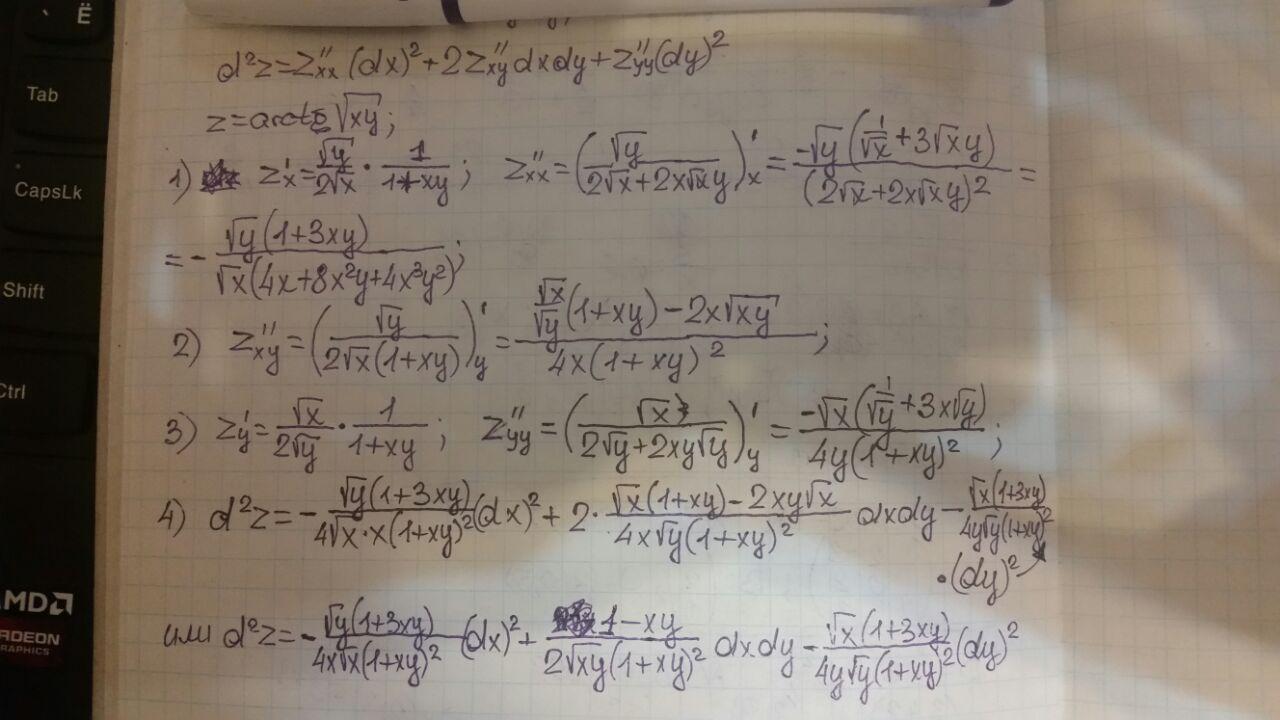 Ё
Tab
CapsLk
Shift
Ctrl
AMD
RADEON
GRAPHICS
d²z=z''xx (dx)²+2z''xy dxdy+z''yy(dy)²
z=arctg √xy;
1) z'x=√y/(2√x)·1/(1+xy); z''xx=(√y/(2√x+2x√xy))'x=-√y(1/√x+3√xy)/(2√x+2x√xy)²=
=-√y(1+3xy)/(√x(4x+8x²y+4x³y²));
2) z''xy=(√y/(2√x(1+xy)))'y=(√x/√y(1+xy)-2x√xy)/(4x(1+xy)²);
3) z'y=√x/(2√y)·1/(1+xy); z''yy=(√x/(2√y+2xy√y))'y=-√x(1/√y+3x√y)/(4y(1+xy)²);
4) d²z=-√y(1+3xy)/(4√x·x(1+xy)²)(dx)²+2·(√x(1+xy)-2xy√x)/(4x√y(1+xy)²) dxdy-√x(1+3xy)/(4y√y(1+xy)²)
·(dy)²
или d²z=-√y(1+3xy)/(4x√x(1+xy)²)(dx)²+(1-xy)/(2√xy(1+xy)²) dxdy-√x(1+3xy)/(4y√y(1+xy)²)(dy)²